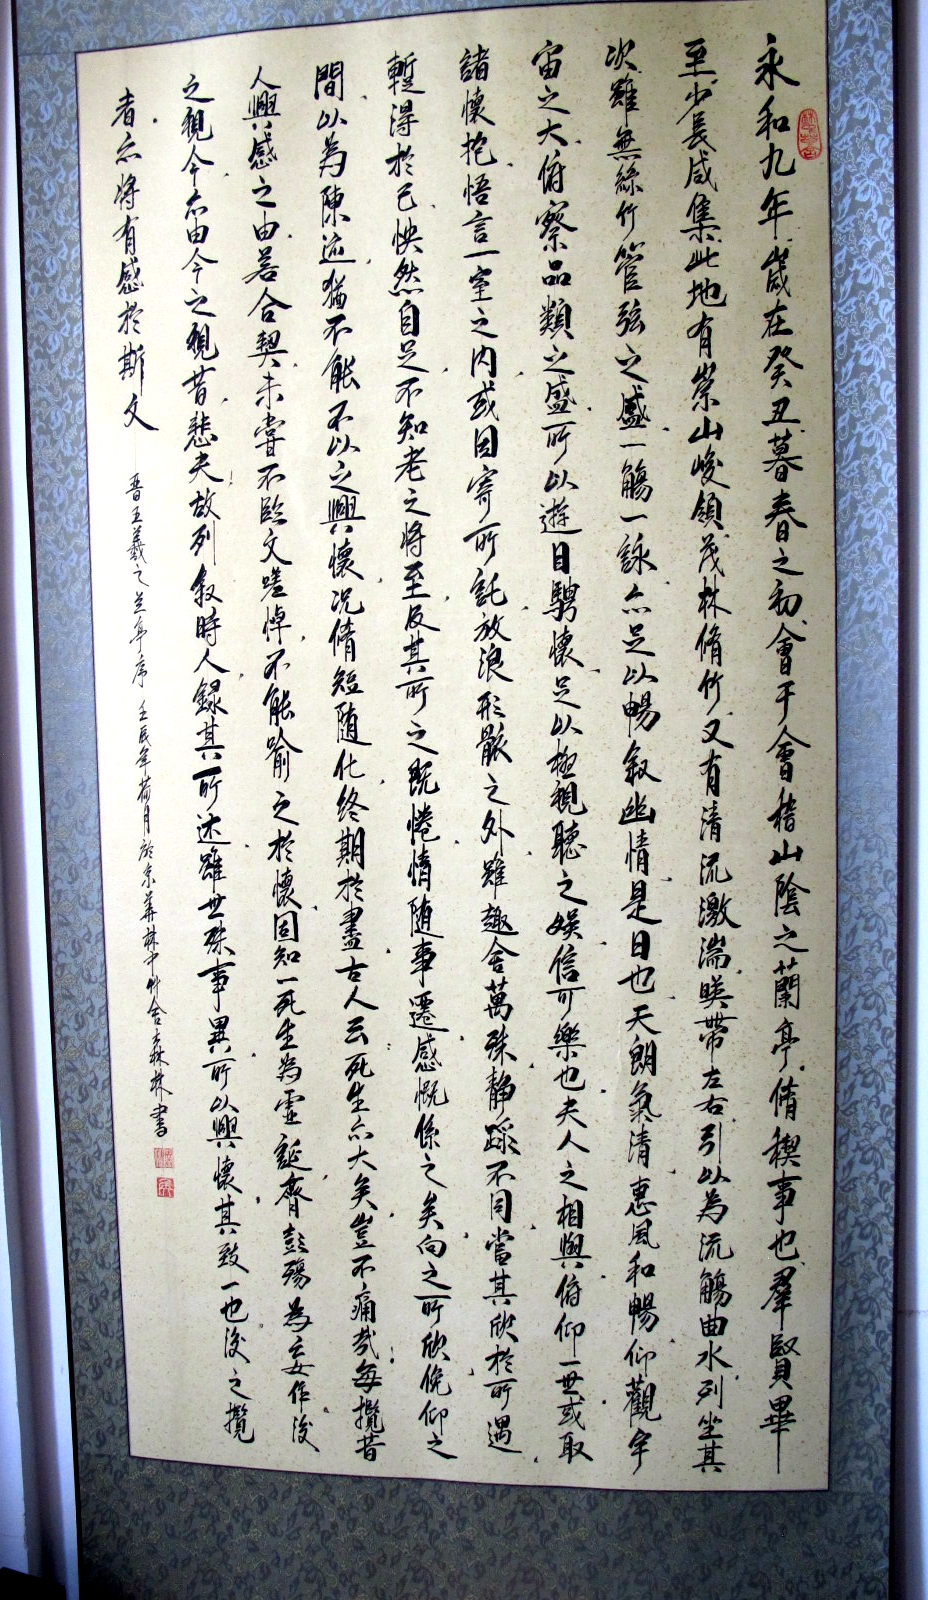 永和九年歲在癸丑暮春之初會于會稽山陰之蘭亭脩稧事也羣賢畢
至少長咸集此地有崇山峻領茂林脩竹又有清流激湍暎帶左右引以為流觴曲水列坐其
次雖無絲竹管弦之盛一觴一詠亦足以暢敘幽情是日也天朗氣清惠風和暢仰觀宇
宙之大俯察品類之盛所以遊目騁懷足以極視聽之娛信可樂也夫人之相與俯仰一世或取
諸懷抱悟言一室之內或因寄所託放浪形骸之外雖趣舍萬殊静躁不同當其欣於所遇
蹔得於己怏然自足不知老之將至及其所之既惓情随事遷感慨係之矣向之所欣俛仰之
間以為陳迹猶不能不以之興懷况脩短随化終期於盡古人云死生亦大矣豈不痛哉每攬昔
人興感之由若合契未嘗不臨文嗟悼不能喻之於懷固知一死生為虛誕齊彭殤為妄作後
之視今亦由今之視昔悲夫故列敘時人録其所述雖世殊事異所以興懷其致一也後之攬
者亦將有感於斯文
晋王羲之兰亭序 壬辰年荷月於京華林中竹舍森林書